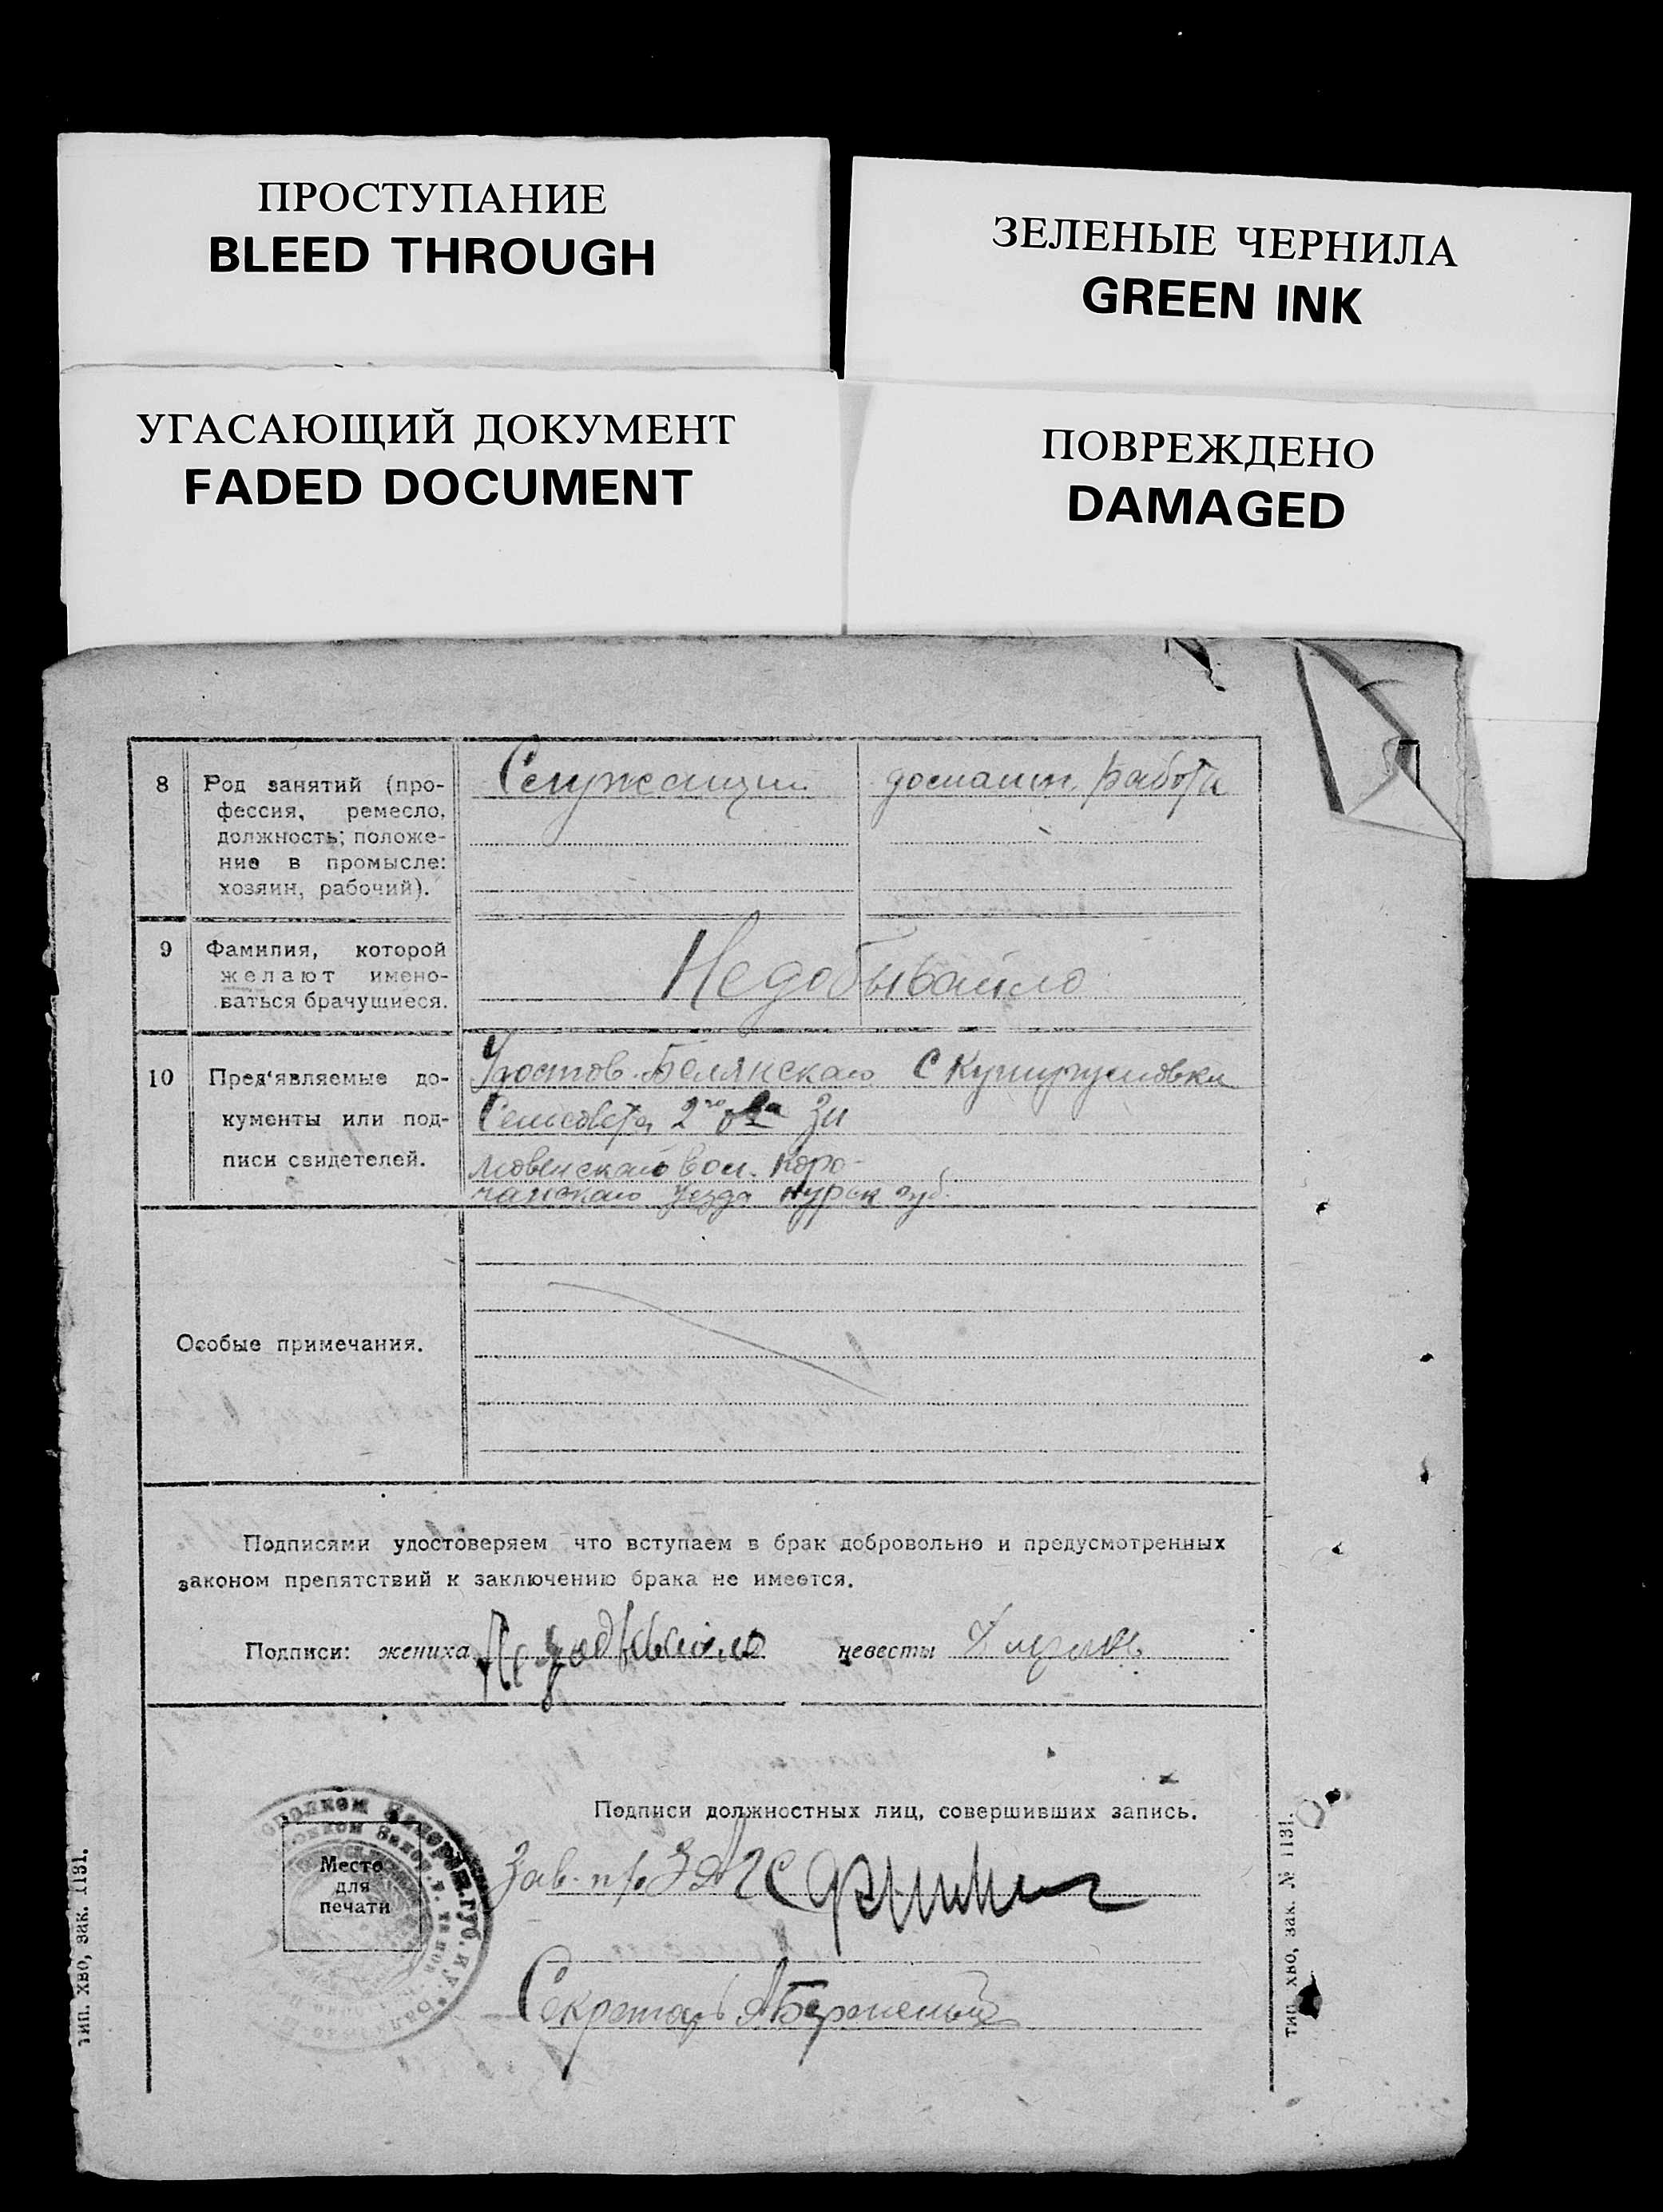 ПРОСТУПАНИЕ
BLEED THROUGH
ЗЕЛЕНЫЕ ЧЕРНИЛА
GREEN INK
УГАСАЮЩИЙ ДОКУМЕНТ
FADED DOCUMENT
ПОВРЕЖДЕНО
DAMAGED
8 Род занятий (про-
фессия, ремесло,
должность; положе-
ние в промысле:
хозяин, рабочий).
Служащий
домашн. работа
9 Фамилия, которой
желают имено-
ваться брачущиеся.
Недобывайло
10 Пред'являемые до-
кументы или под-
писи свидетелей.
Удостов. Белянскаго С
Сельсовета, 2го
Вол. Коро-
чанскаго уезда Курск губ.
Особые примечания.
Подписями удостоверяем что вступаем в брак добровольно и предусмотренных
законом препятствий к заключению брака не имеется.
Подписи: жениха Недобывайло невесты
Подписи должностных лиц, совершивших запись.
Место
для
печати
Зав. п/о
Секретарь
тип. ХВО, зак. 1131.
тип. ХВО, зак. № 1131.